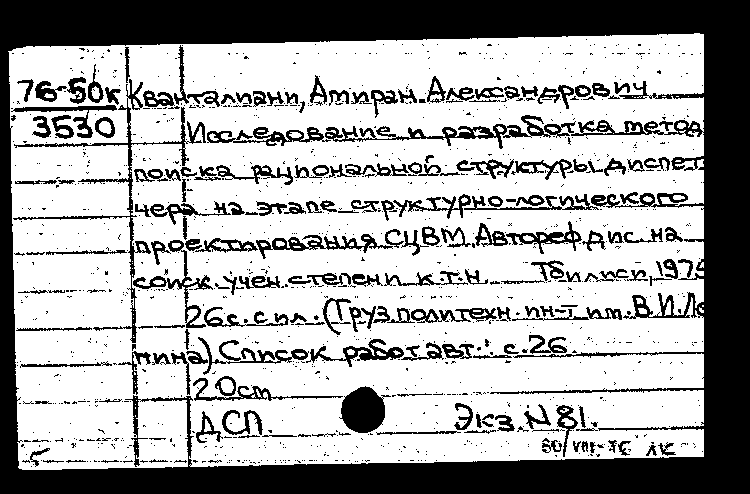 76-50к Кванталиани, Амиран Александрович
3530 Исследование и разработка метод
поиска рациональной структуры диспет
чера на этапе структурно-логического
проектирования СЦВМ. Автореф. дис. на
соиск. учен. степени к.т.н. Тбилиси, 1975
26 с. с ил. (Груз. политехн. ин-т им. В.И. Ле
нина). Список работ авт.: с. 26.
20 см
ДСП. Экз. N 81.